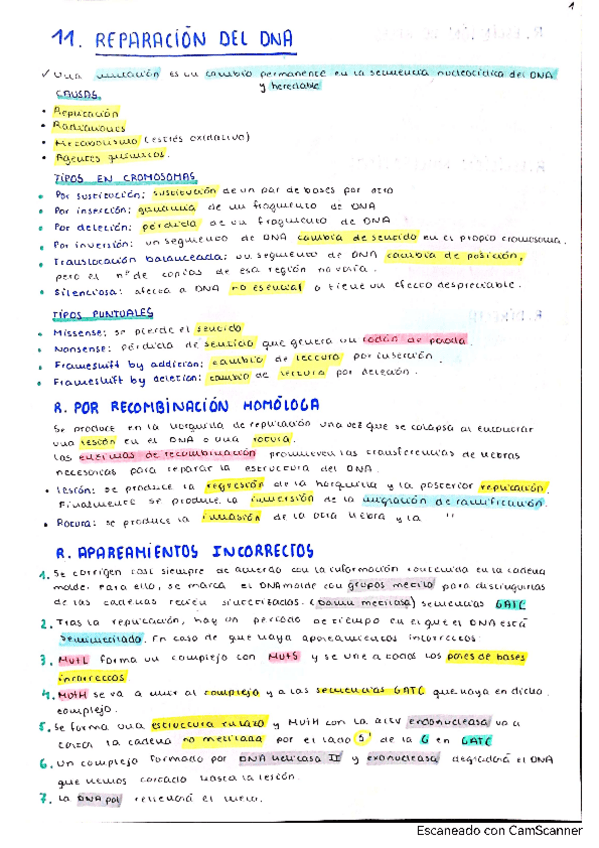 1
11. REPARACIÓN DEL DNA
✓ Una mutación es un cambio permanente en la secuencia nucleotídica del DNA
y heredable
CAUSAS
• Replicación
• Radiaciones
• Metabolismo (estrés oxidativo)
• Agentes químicos.
TIPOS EN CROMOSOMAS
• Por sustitución: sustitución de un par de bases por otro
• Por inserción: ganancia de un fragmento de DNA
• Por deleción: pérdida de un fragmento de DNA
• Por inversión: un segmento de DNA cambia de sentido en el propio cromosoma.
• Translocación balanceada: un segmento de DNA cambia de posición,
pero el nº de copias de esa región no varía.
• Silenciosa: afecta a DNA no esencial o tiene un efecto despreciable.
TIPOS PUNTUALES
• Missense: se pierde el sentido
• Nonsense: pérdida de sentido que genera un codón de parada.
• Frameshift by addition: cambio de lectura por inserción.
• Frameshift by deletion: cambio de lectura por deleción.
R. POR RECOMBINACIÓN HOMÓLOGA
Se produce en la horquilla de replicación una vez que se colapsa al encontrar
una lesión en el DNA o una rotura.
Las enzimas de recombinación promueven las transferencias de hebras
necesarias para reparar la estructura del DNA.
• Lesión: se produce la regresión de la horquilla y la posterior replicación.
Finalmente se produce la inversión de la migración de ramificación.
• Rotura: se produce la invasión de la otra hebra y la "
R. APAREAMIENTOS INCORRECTOS
1. Se corrigen casi siempre de acuerdo con la información contenida en la cadena
molde. Para ello, se marca el DNA molde con grupos metilo para distinguirlas
de las cadenas recién sintetizadas. (Dam metilasa) secuencias GATC
2. Tras la replicación, hay un periodo de tiempo en el que el DNA está
semimetilado. En caso de que haya apareamientos incorrectos:
3. MutL forma un complejo con MutS y se une a todos los pares de bases
incorrectos
4. MutH se va a unir al complejo y a las secuencias GATC que haya en dicho
complejo.
5. Se forma una estructura en lazo y MutH con la actv endonucleasa va a
cortar la cadena no metilada por el lado 5' de la G en GATC
6. Un complejo formado por DNA helicasa II y exonucleasa degradará el DNA
que hemos cortado hasta la lesión.
7. La DNA pol rellenará el hueco.
Escaneado con CamScanner